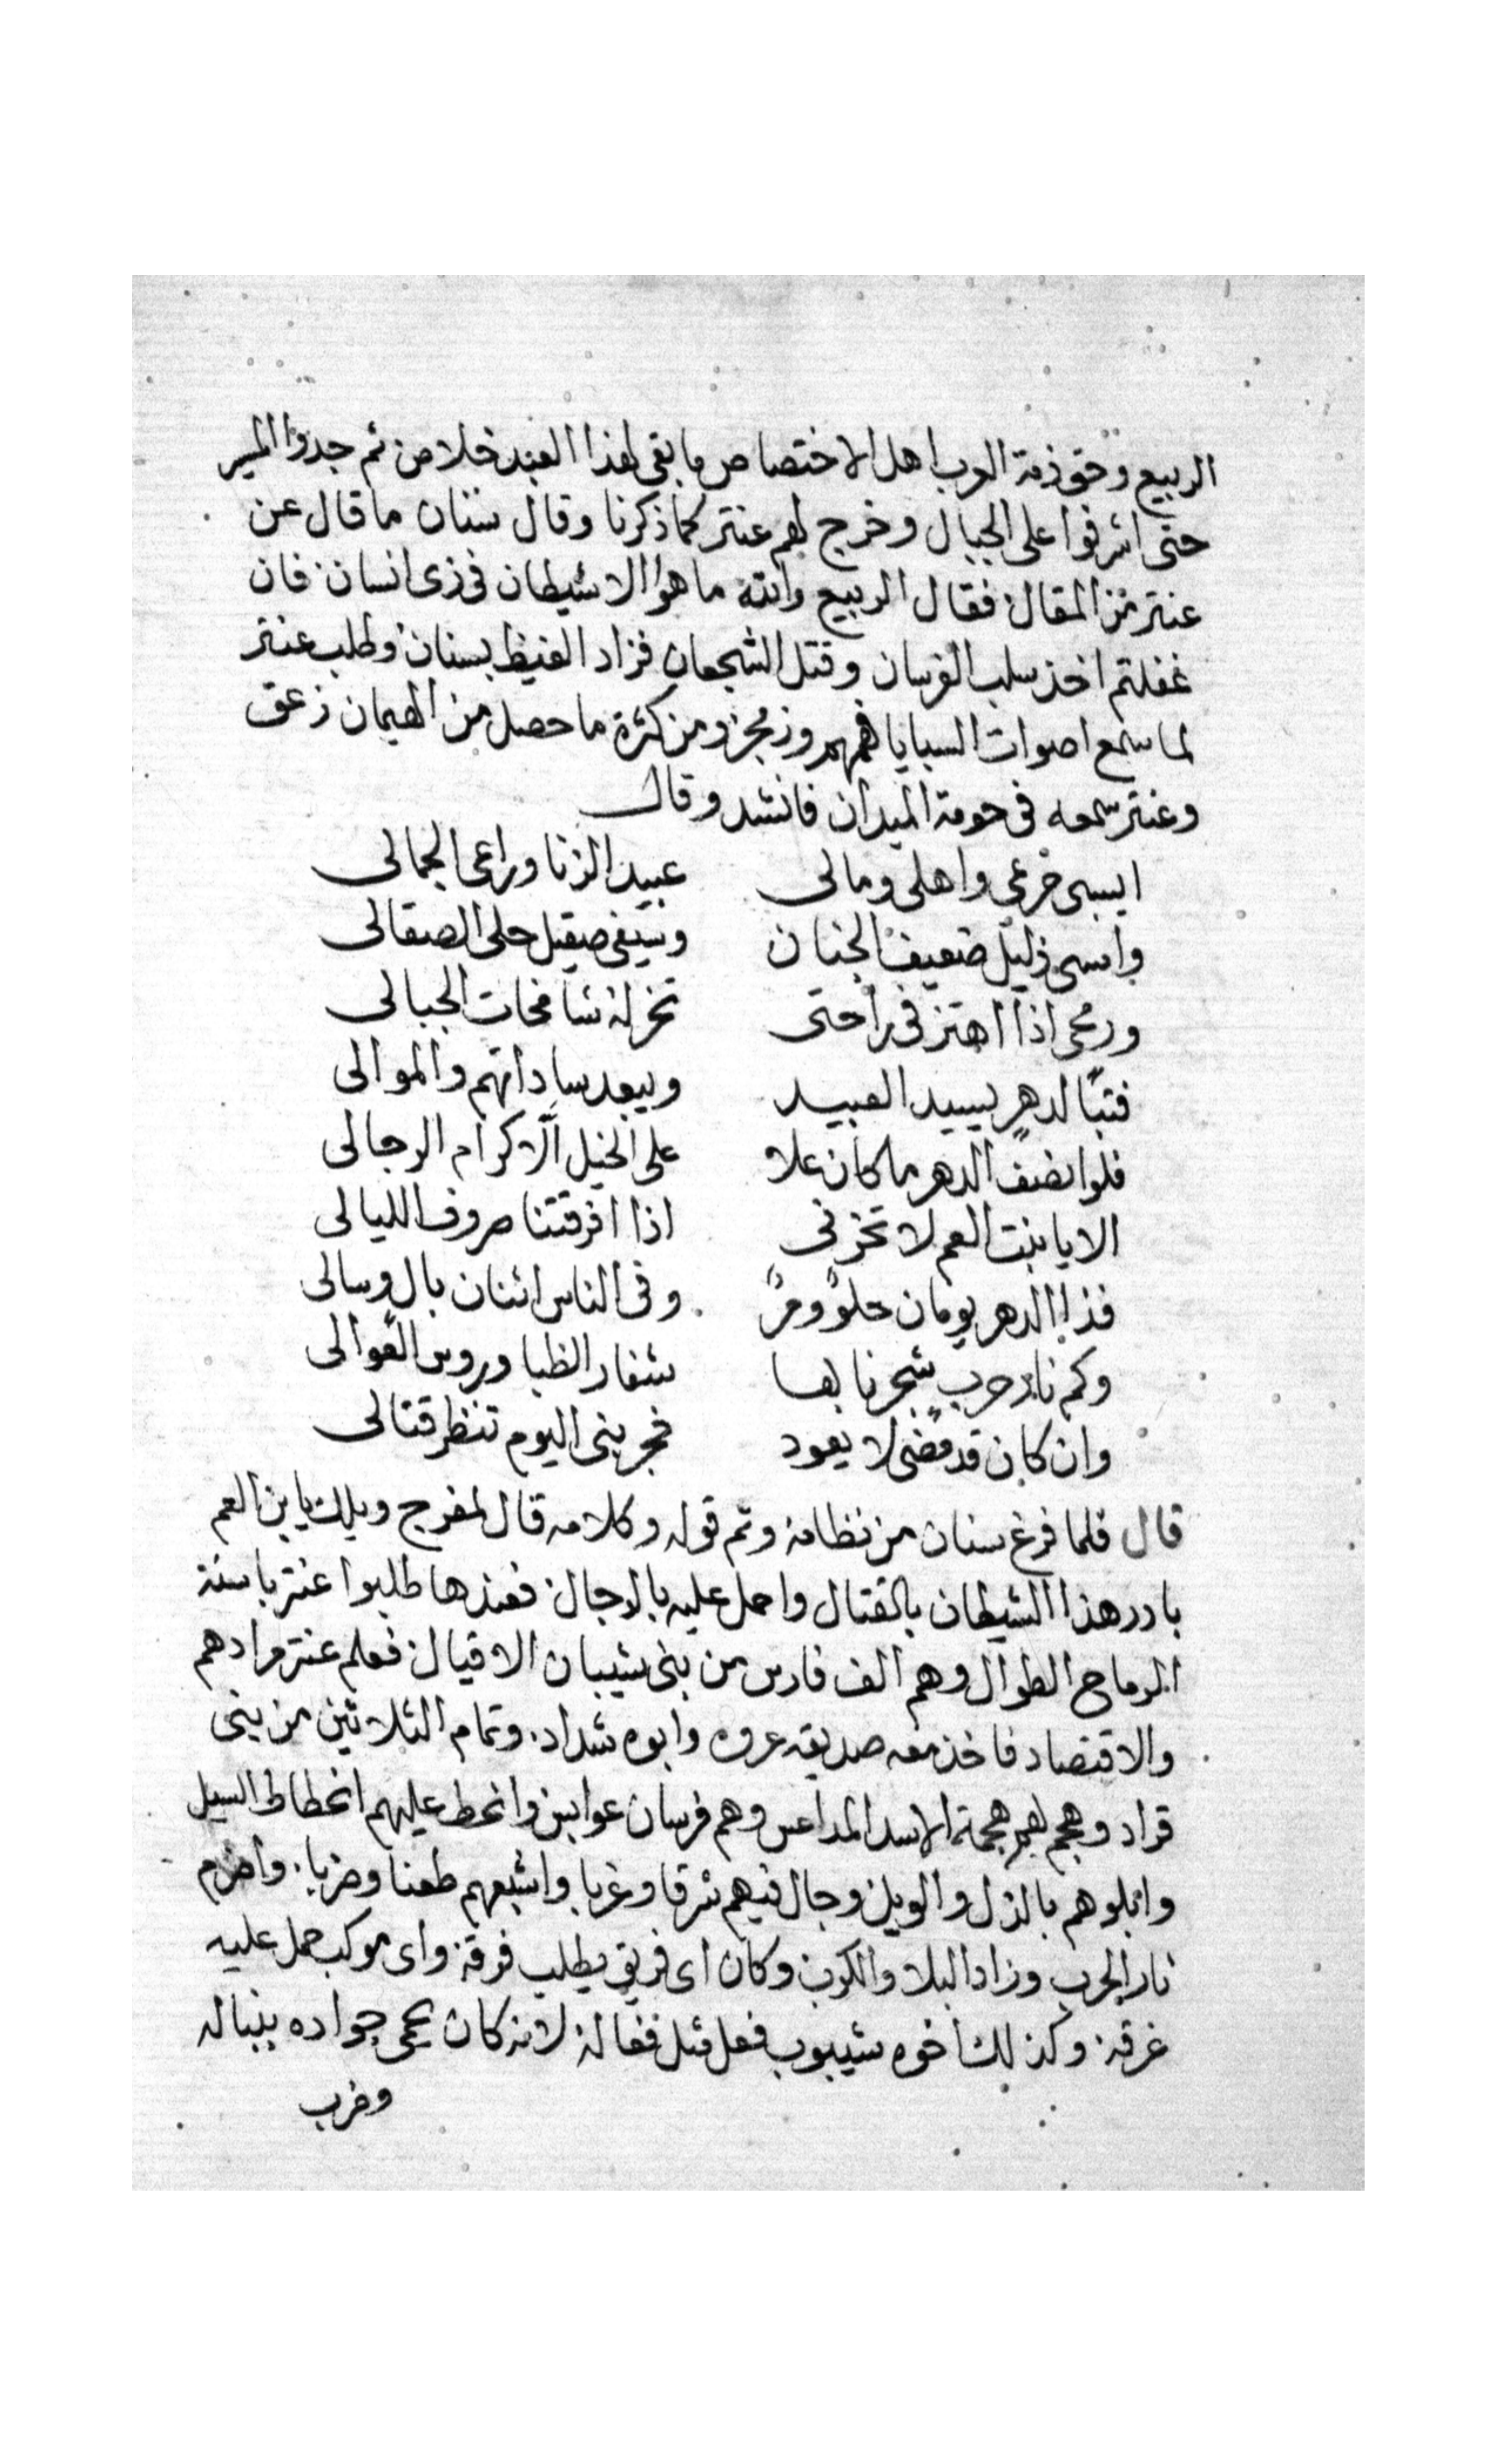 الربيع وحق ذمة العرب اهل الاختصاص ما بقى لهذا العبد خلاص ثم جدوا المسير
حتى اشرفوا على الجبال وخرج لهم عنتر كما ذكرنا وقال سنان ما قال عن
عنتر من المقال فقال الربيع والله ما هو الا شيطان فى زى انسان فان
غفلتم اخذ سلب الفرسان وقتل الشجعان فزاد الغيظ بسنان وطلب عنتر
لما سمع اصوات السبايا همهم وزمجر ومن كثرة ما حصل من الهيمان زعق
وعنتر سمعه فى حومة الميدان فانشد وقال
ايسبى حرمى واهلى ومالى عبيد الزنا وراعى الجمالى
وامسى ذليل ضعيف الجنان وسيفى صقيل جلى الصقالى
ورمحى اذا اهتز فى راحتى تخر له شامخات الجبالى
فتبًا لدهرٍ يسيد العبيد ويبعد ساداتهم والموالى
فلو انصف الدهر ما كان علا على الخيل الّا كرام الرجالى
الا يا بنت العم لا تحزنى اذا افرقتنا صروف الليالى
فذا الدهر يومان حلوٌ ومرٌ وفى الناس اثنان بال وسالى
وكم نار حربٍ شجرنا بها شفار الظبا وروس العوالى
وان كان قد مضى لا يعود فجربنى اليوم تنظر قتالى
قال فلما فرغ سنان من نظامه وتم قوله وكلامه قال لمفرج ويلك يا بن العم
بادر هذا الشيطان بالقتال واحمل عليه بالرجال فعندها طلبوا عنتر باسنة
الرماح الطوال وهم الف فارس من بنى شيبان الاقيال فعلم عنتر مرادهم
والاقتصاد فاخذ معه صديقه عروه وابوه شداد وتمام الثلاثين من بنى
قراد وهجم لهم هجمة الاسد المداعس وهم فرسان عوابس وانحط عليهم انحطاط السيل
وابلوهم بالذل والويل وجال فيهم شرقا وغربا واشبعهم طعنا وضربا واضرم
نار الحرب وزاد البلا والكرب وكان اى فريق يطلب فرقه واى موكب حمل عليه
غرقه وكذلك اخوه شيبوب فعل مثل فعاله لانه كان يحمى جواده بنباله
وضرب